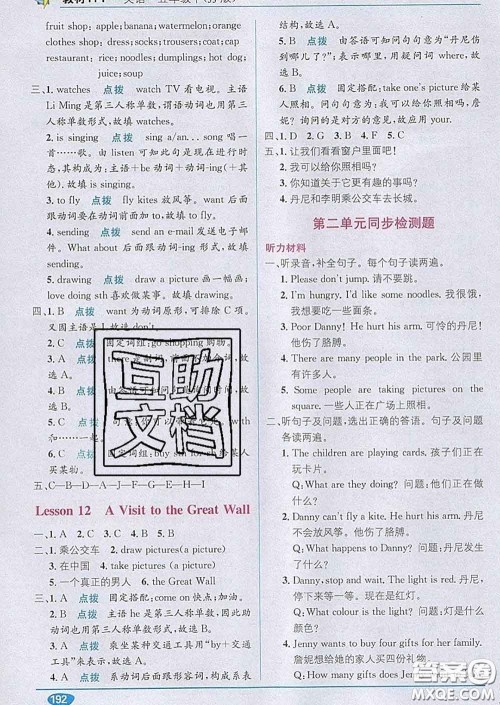 fruit shop: apples; watermelon; orange
clothes shop: dresses; coat; cap
restaurant: rice; noodles; dumplings; hot dog;
juice; soup
三、1. watches 点拨 watch TV 看电视。主语
Li Ming 是第三人称单数，谓语动词也用第三
人称单数形式，故填 watches。
2. is singing 点拨 sing a/an... song 唱一
首……歌。由 listen 可知此句是现在进行时
态，其构成为：主语+be 动词+动词-ing(+其
他)，故填 is singing。
3. to fly 点拨 to fly kites 放风筝。want 后面
跟动词要在动词前加 to，故填 to fly。
4. sending 点拨 send an e-mail 发送电子邮
件。What about 后面跟动词-ing 形式，故填
sending。
5. drawing 点拨 draw a picture 画一幅画；
love doing sth 喜欢做某事。故填 drawing。
四、1. B 点拨 want 为动词原形，可排除 C 项。
固定词组：go shopping 购物。
买某物。
五、C—B—A—D—
Lesson 12 A Visit to the Great Wall
一、1. A 2. C 3. A 4. B 5. B
二、1. 乘公交车 2. draw pictures(a picture)
3. 在中国 4. take pictures(a picture)
5. 一个真正的男人 6. the Great Wall
三、1. A 点拨 固定搭配：come on 快点；加油。
2. C 点拨 主语 he 是第三人称单数，因此助
动词也用第三人称单数，故选 C。
3. A 点拨 乘坐某种交通工具用“by+交通
工具”来表示，故选 A。
4. A 点拨 系动词后面跟形容词，构成系表
192
结构，故选 A。
5. B 点拨 由答语可知问句句意为“丹尼伤
到了哪里？”表示哪里，用疑问词 where，故
选 B。
6. C 点拨 由问句可知固定词组：take one's picture 给某
人照相。问句句意为：我可以给你照相吗，詹
妮？询问是对方的形式，故应用 your。
四、1. D 2. G 3. B 4. F 5. C
五、1. 让我们看看窗户里面吧！
2. 我可以给你照相吗？
3. 你知道关于它我更有趣的事吗？
4. 丹尼和李明乘公交车去长城。
第二单元同步检测题
听力材料
一、听录音，补全句子。每个句子读两遍。
1. Please don't jump. 请不要跳。
2. I'm hungry. I'd like some noodles. 我很
饿。我想要吃一些面条。
3. Poor Danny! He hurt his arm. 可怜的丹
尼！他伤了胳膊。
4. There are many people in the park. 公园里
有许多人。
5. Some people are taking pictures on the
square. 一些人正在广场上照相。
二、听句子及问题，选出正确的答语。句子及问题
各读两遍。
1. The children are playing cards. 孩子们正在
玩卡片。
Q: What are they doing? 他们正在做
什么？
2. Danny can't fly a kite. He hurt his arm. 丹
尼不能放风筝。他伤了胳膊。
Q: What happens to Danny? 丹尼发生了
什么？
3. Danny, stop and wait. The light is red. 丹尼，
停下等一等。现在是红灯。
Q: What colour is the light? 灯是什么
颜色？
4. Jenny wants to buy four gifts for her family.
詹妮想给她的家人买四份礼物。
互助
文档
答案圈
MXQE.COM